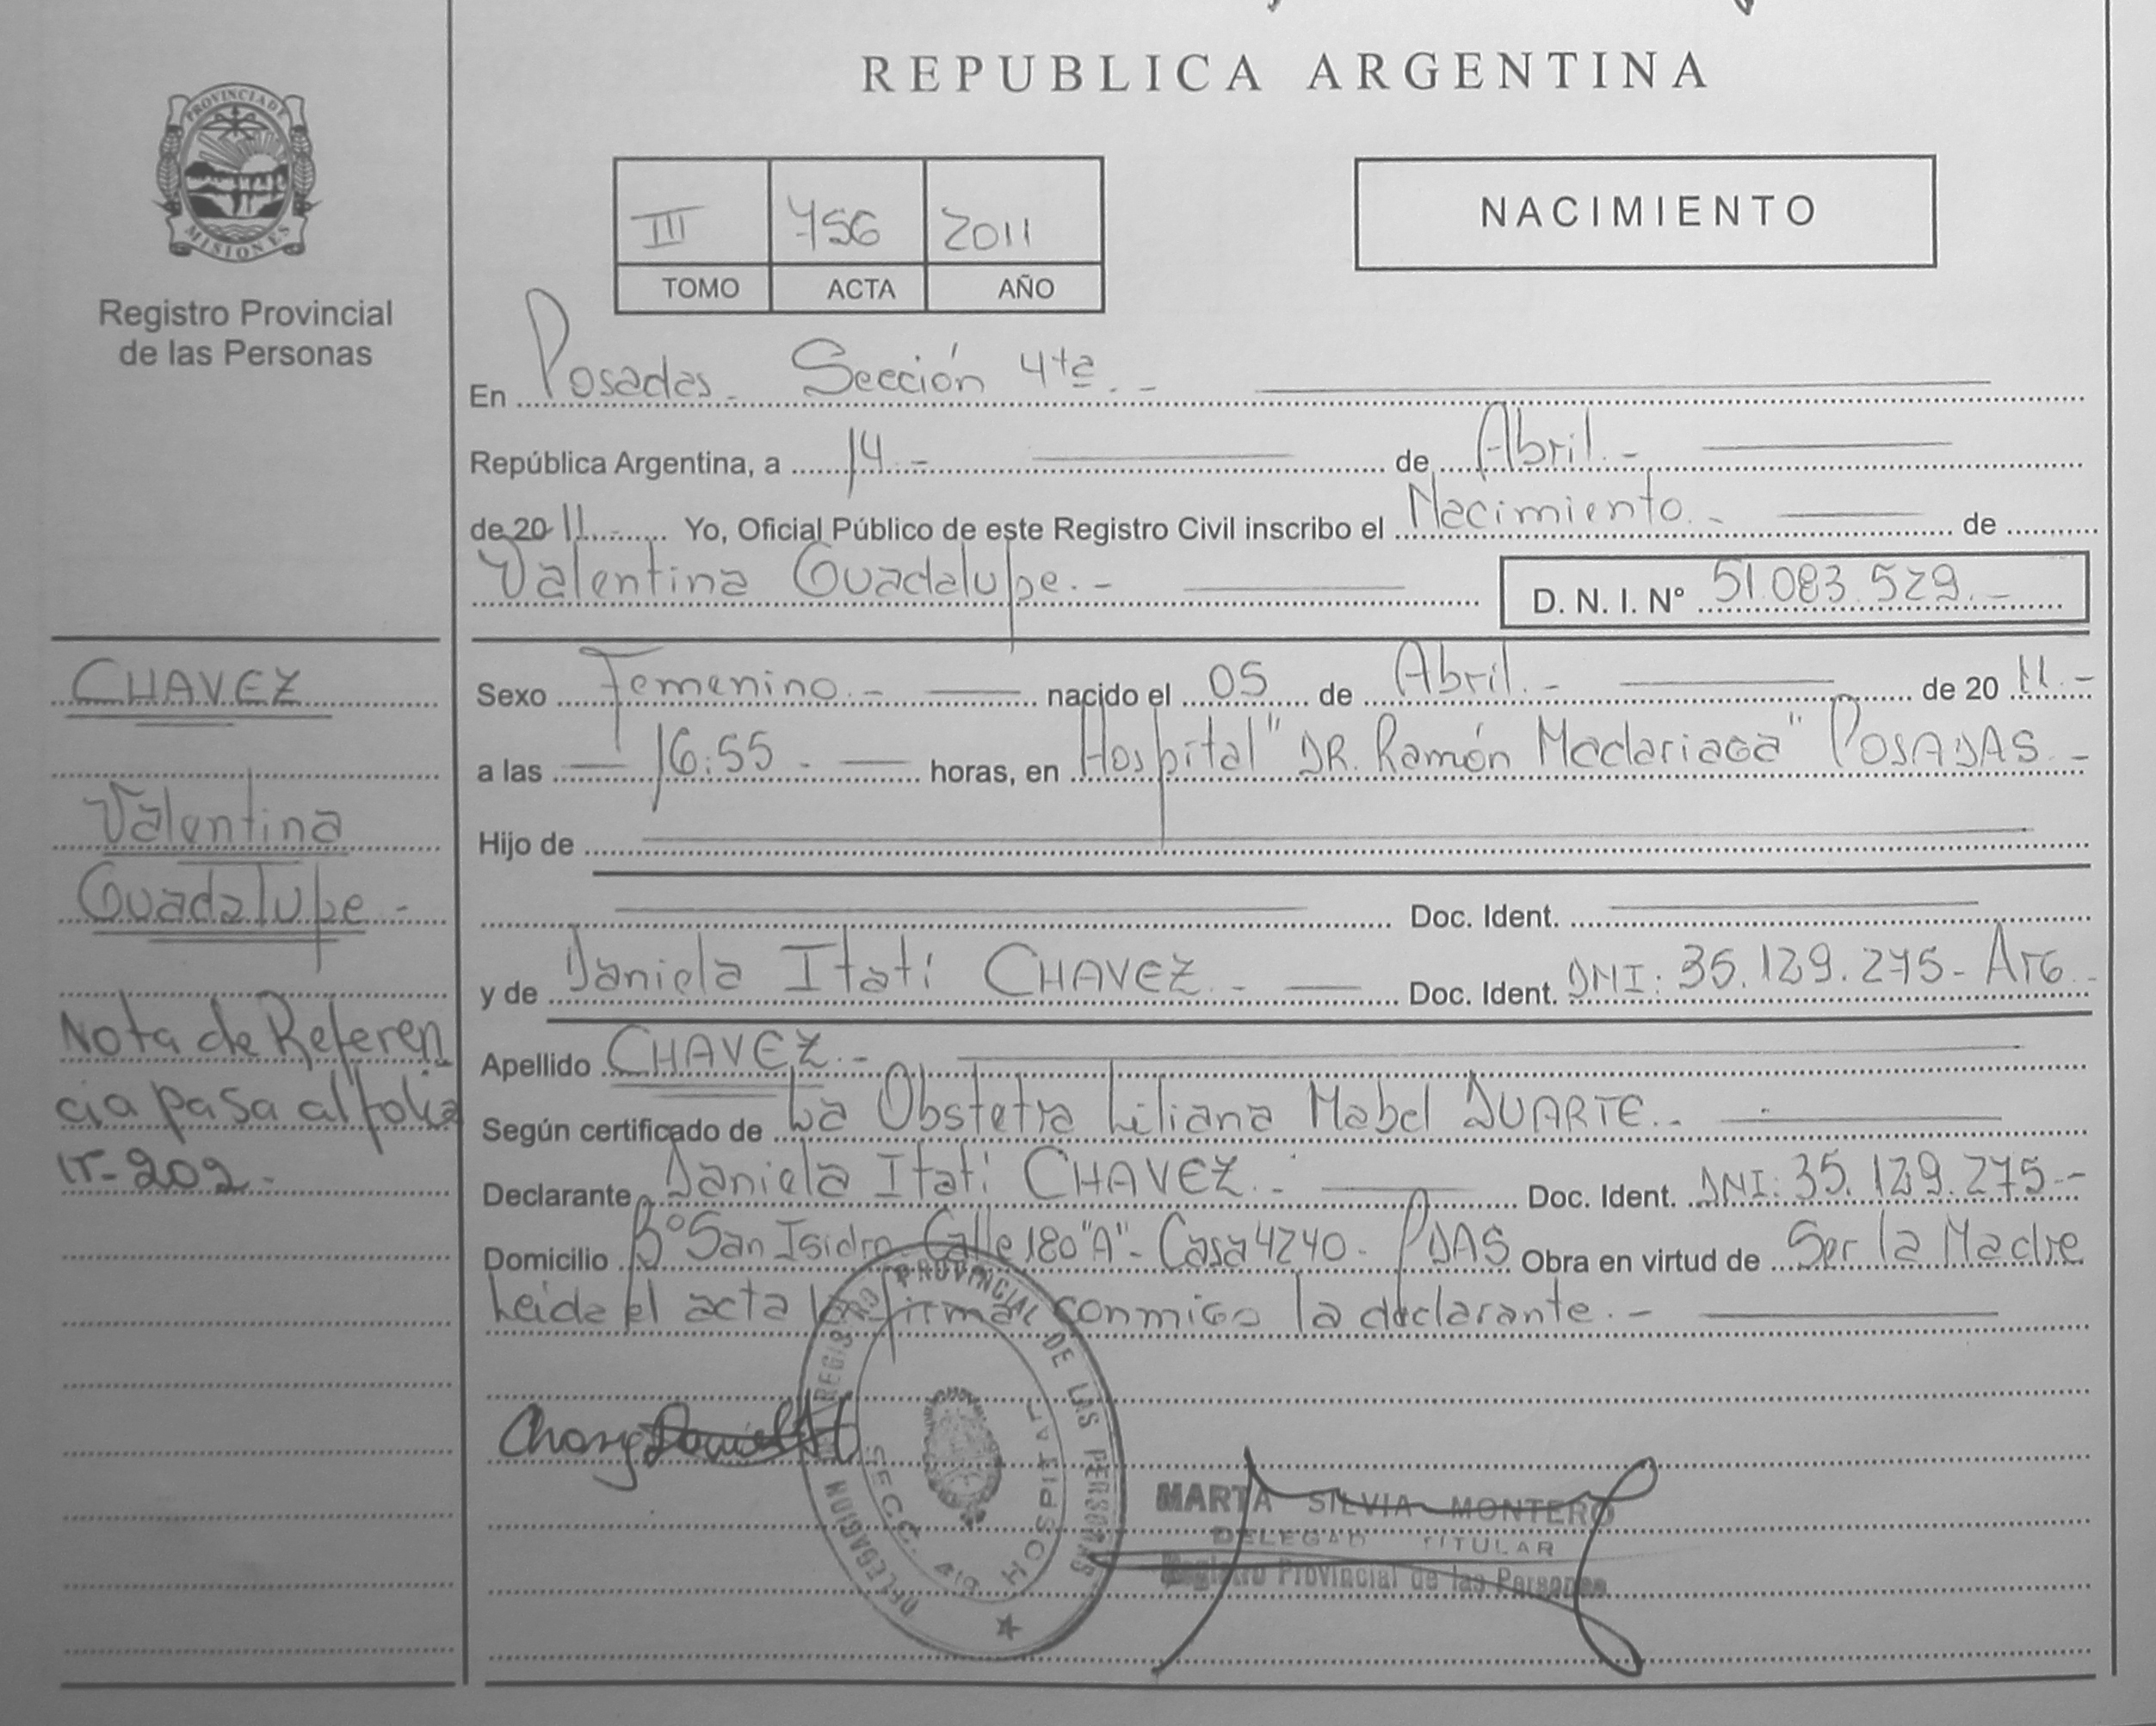 PROVINCIA DE
MISIONES
Registro Provincial
de las Personas
REPUBLICA ARGENTINA
III 756 2011
TOMO ACTA AÑO
NACIMIENTO
En Posadas - Sección 4ta. -
República Argentina, a 14.- de Abril.-
de 2011.- Yo, Oficial Público de este Registro Civil inscribo el Nacimiento.- de
Valentina Guadalupe.- D. N. I. N° 51.083.529.-
Sexo Femenino.- nacido el 05 de Abril.- de 2011.-
a las 16:55.- horas, en Hospital "DR. Ramón Madariaga" POSADAS.-
Hijo de
Doc. Ident.
y de Daniela Itatí CHAVEZ.- Doc. Ident. DNI: 35.129.275- Arg.-
Apellido CHAVEZ.-
Según certificado de La Obstetra Liliana Mabel DUARTE.-
Declarante Daniela Itatí CHAVEZ.- Doc. Ident. DNI: 35.129.275.-
Domicilio B° San Isidro Calle 180 "A"- Casa 4240- PDAS Obra en virtud de Ser la Madre
Leida el acta la firma conmigo la declarante.-
CHAVEZ
Valentina
Guadalupe.-
Nota de Referen
cia pasa al folio
202.-
DELEGACION REGISTRO PROVINCIAL DE LAS PERSONAS
SECC. 4ta HOSPITAL
MARTA SILVIA MONTERO
DELEGAD TITULAR
Registro Provincial de las Personas